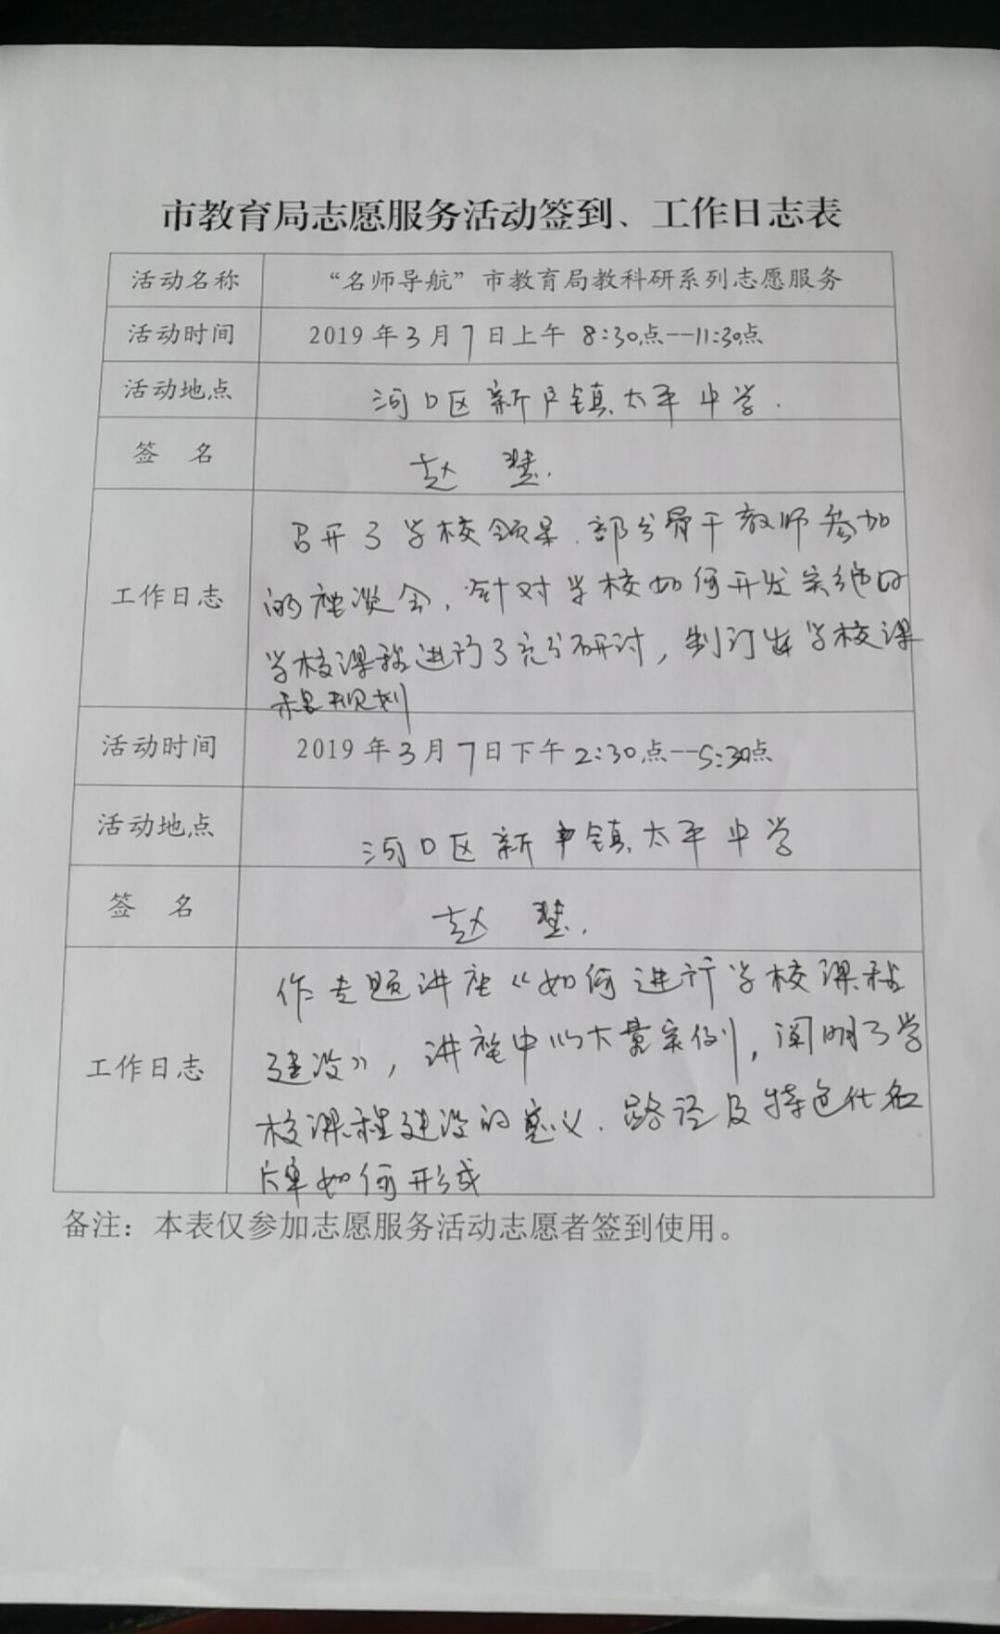 市教育局志愿服务活动签到、工作日志表
活动名称 “名师导航”市教育局教科研系列志愿服务
活动时间 2019年3月7日上午 8:30点--11:30点
活动地点 河口区新户镇太平中学.
签 名 赵 慧.
工作日志
召开了学校领导、部分骨干教师参加
的座谈会，针对学校如何开发实施
学校课程进行了充分研讨，制订出学校课
程规划
活动时间 2019年3月7日下午2:30点--5:30点
活动地点 河口区新户镇太平中学
签 名 赵 慧.
工作日志
作专题讲座《如何进行学校课程
建设》，讲座中以大量案例，阐明了学
校课程建设的意义、路径及特色化名
牌如何形成
备注：本表仅参加志愿服务活动志愿者签到使用。